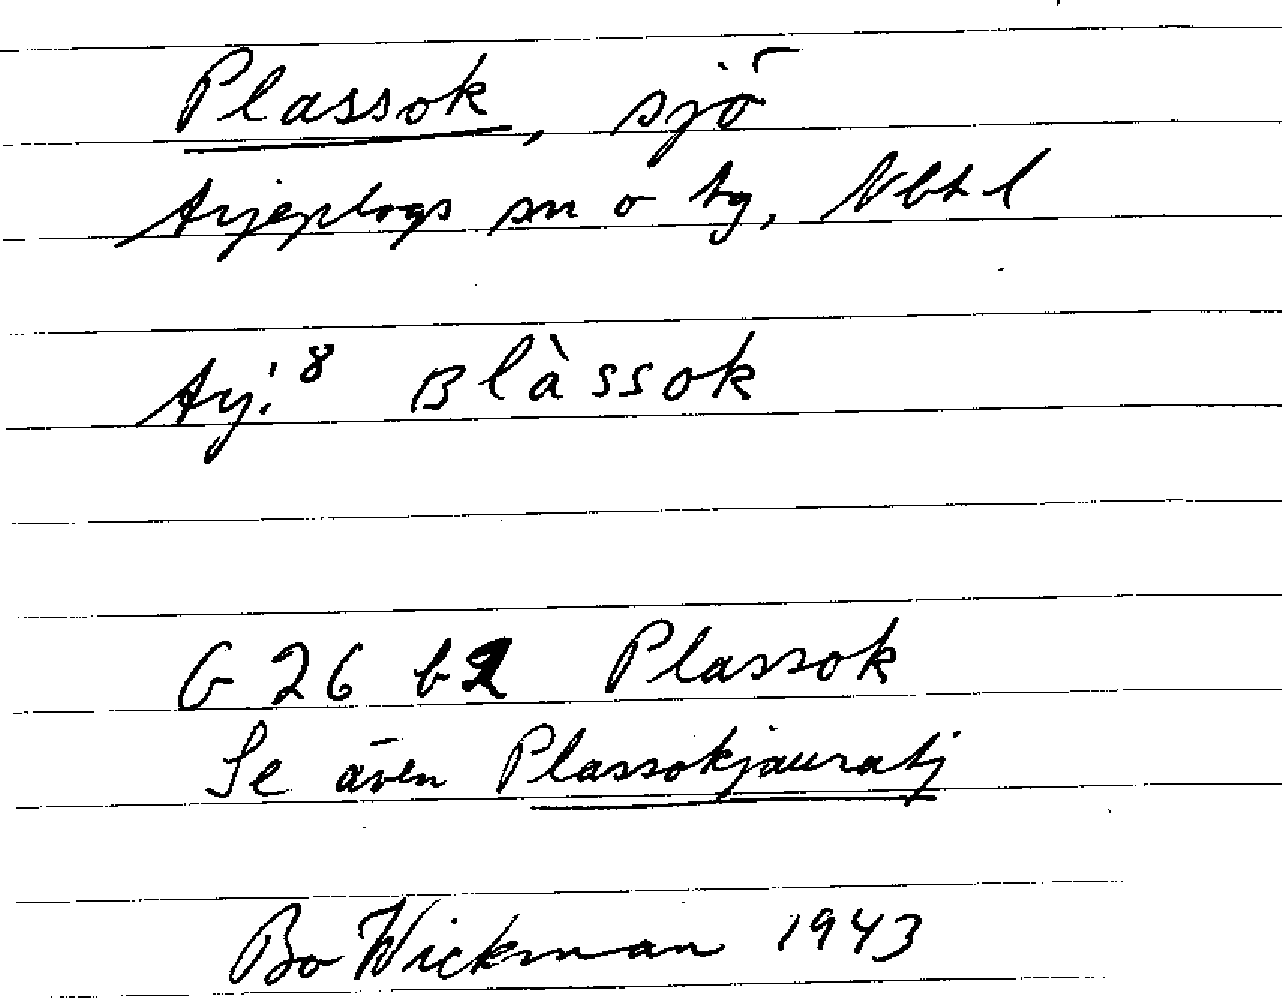 Plassok, sjö
Arjeplogs sn o tg, Nbt l
Arj.⁸ Blàssok
G 26 b2 Plassok
Se även Plassokjauratj
Bo Wickman 1943